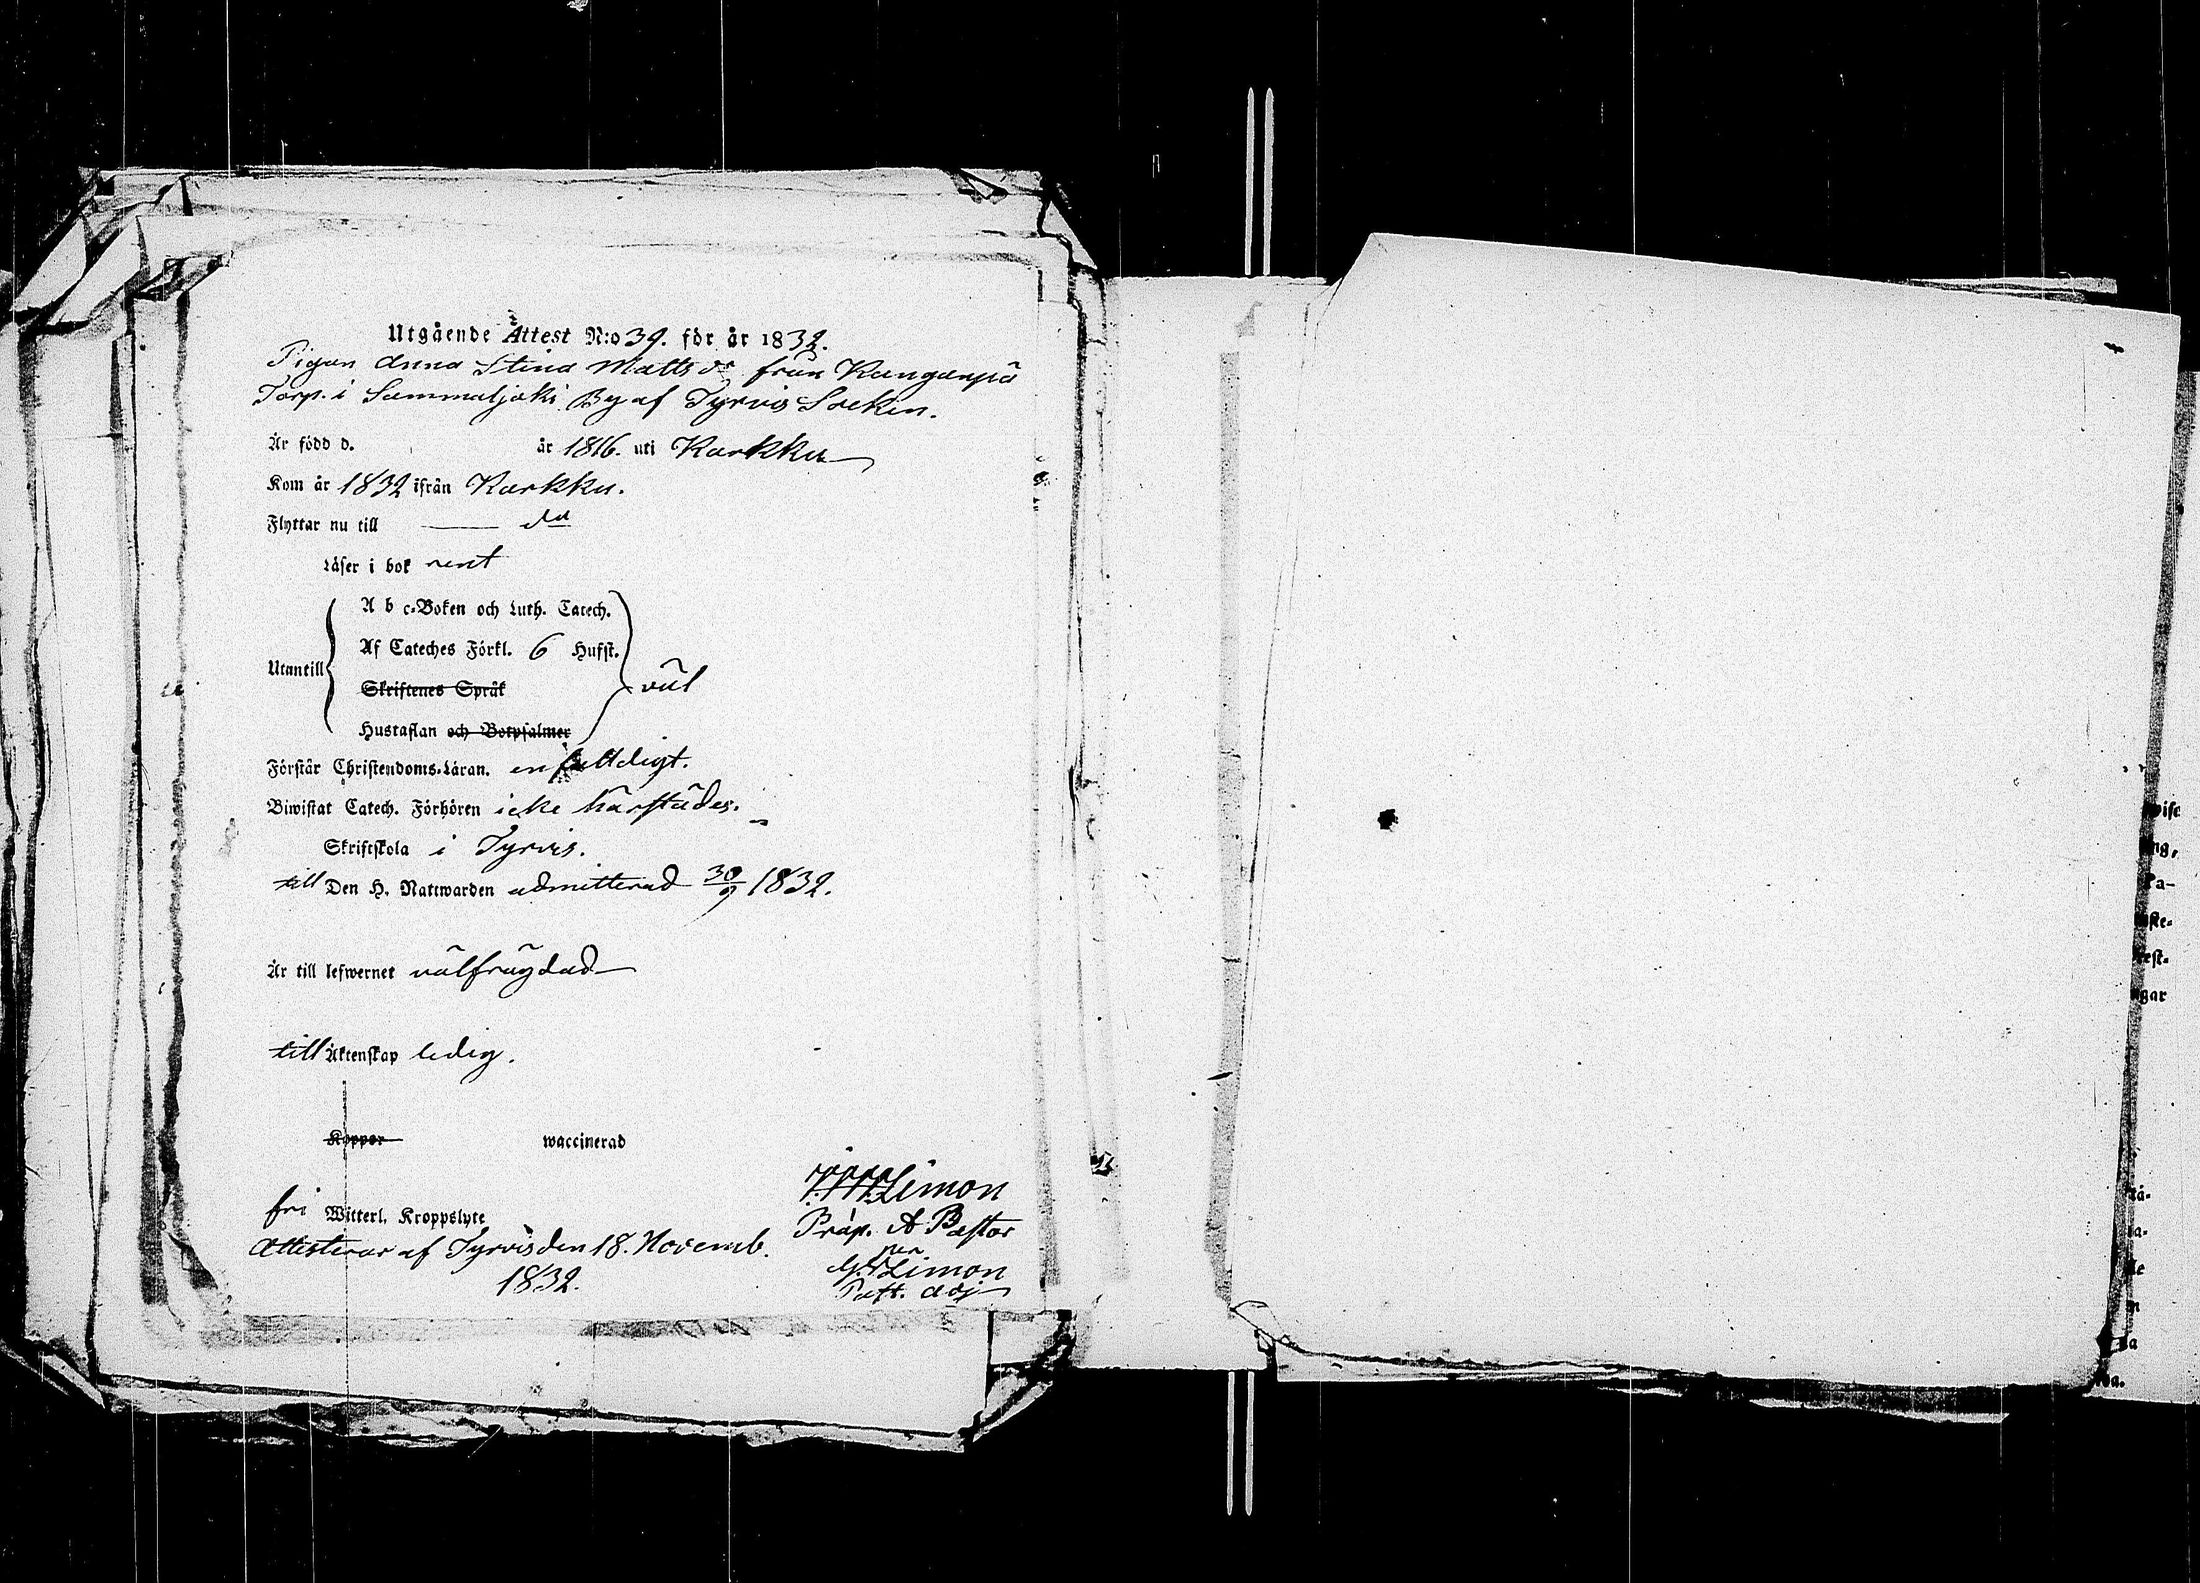 Utgående Attest N:o 39. för år 1832.
Pigan Anna Stina Matts dr från Kangaspä
Torp. i Sammaljoki By af Tyrvis Socken.
Är född d. år 1816. uti Karkku
Kom år 1832 ifrån Karkku.
Flyttar nu till —— do
Läser i bok rent
Utantill
A b c-Boken och Luth. Catech.
Af Cateches Förkl. 6 Hufst.
Skriftenes Språk
väl
Hustaflan och Botpsalmer
Förstår Christendoms-Läran. enfaldigt.
Biwistat Catech. Förhören icke härstädes.
Skriftskola i Tyrvis.
till Den H. Nattwarden admitterad 30/9 1832.
Är till lefwernet välfrägdad
till Äktenskap ledig.
Koppor waccinerad
Limon
fri Witterl. Kroppslyte
Präp. & Pastor
Attesterar af Tyrvis den 18. Novemb.
1832.
per
G. Limon
Past. adj